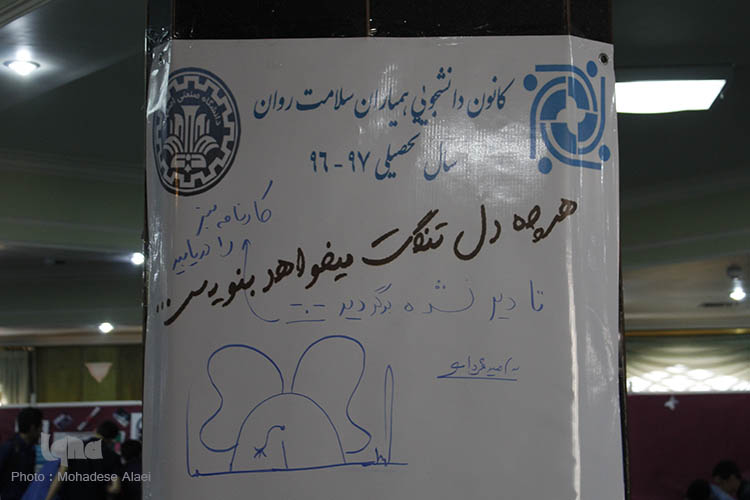 کانون دانشجویی همیاران سلامت روان
سال تحصیلی ۹۷-۹۶
کارنامه سبز
را دریابید
هر چه دل تنگت میخواهد بنویس...
تا دیر نشده برگردید
به امید فردا
iqna
Photo : Mohadese Alaei